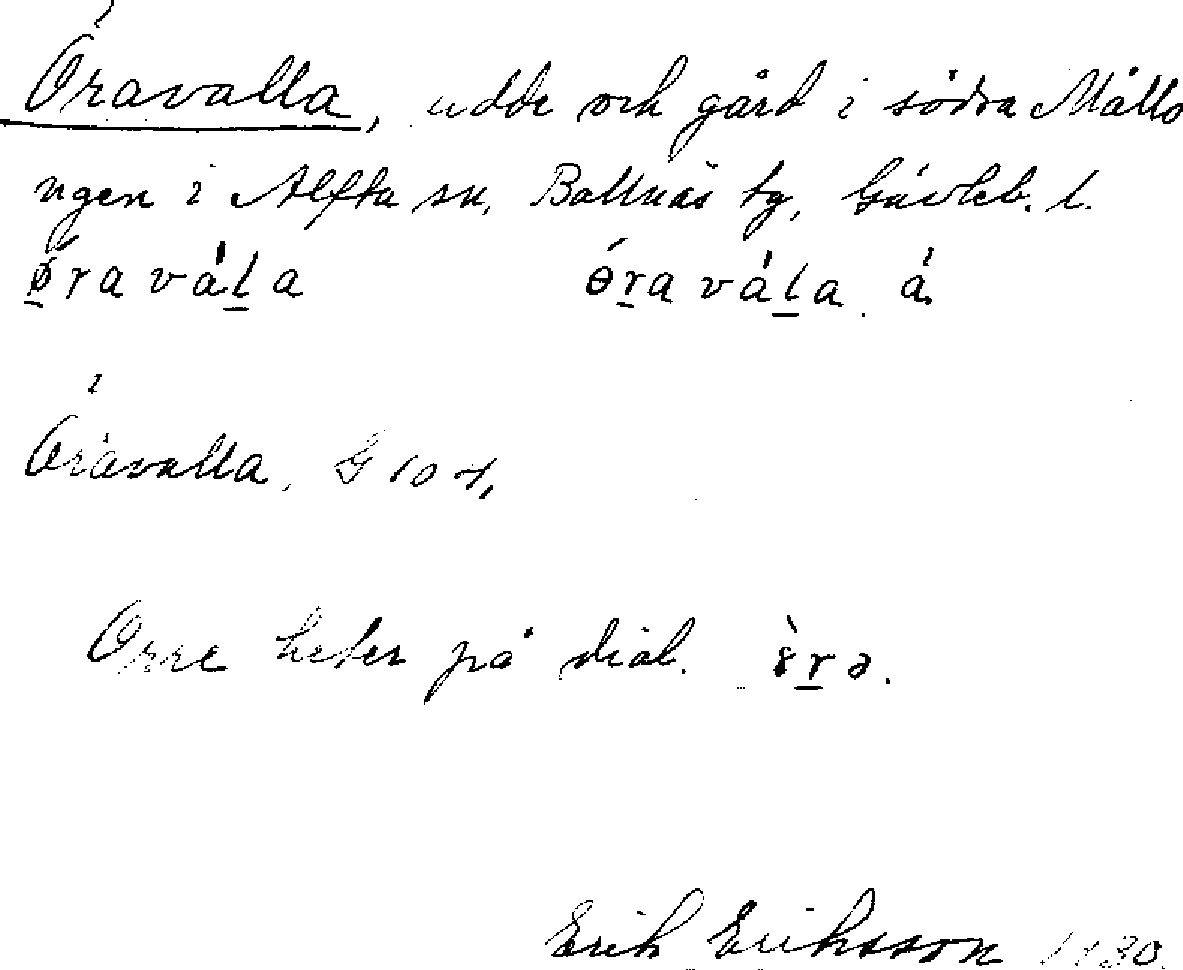 Öravalla, udde och gård i södra Mållo
ngen i Alfta sn, Bollnäs tg, Gävleb. l.
ǿravála ɵ́ravála á
Öravalla,
Orre heter på dial.
Erik Eriksson